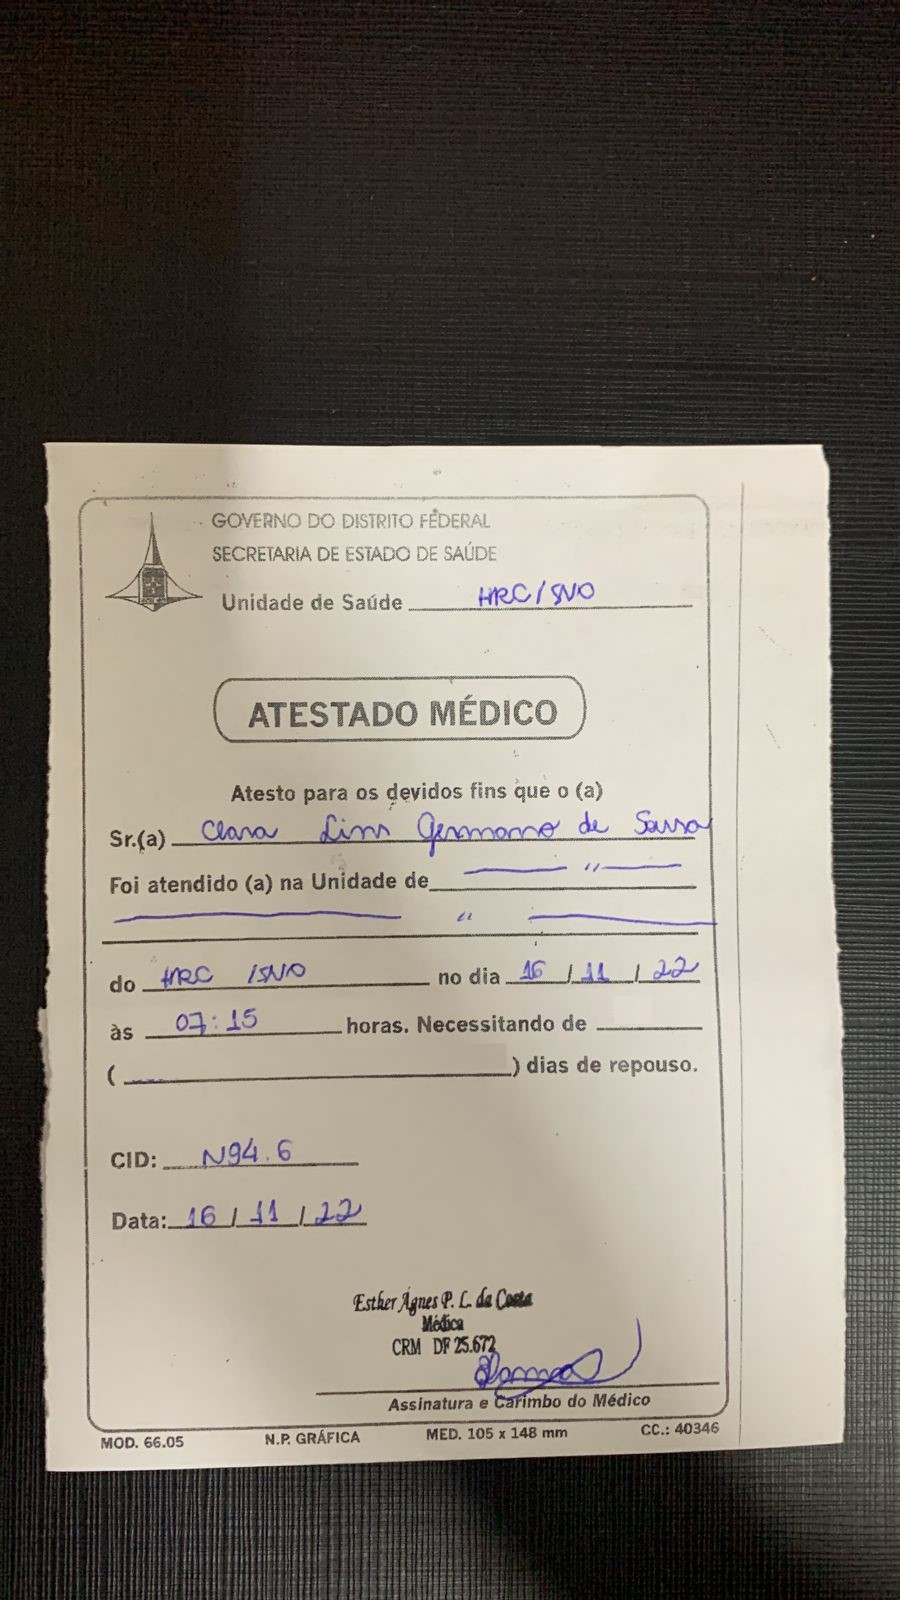 GOVERNO DO DISTRITO FEDERAL
SECRETARIA DE ESTADO DE SAÚDE
Unidade de Saúde HRC/SVO
ATESTADO MÉDICO
Atesto para os devidos fins que o (a)
Sr.(a) Clara Lins Germano de Sousa
Foi atendido (a) na Unidade de — " —
— " —
do HRC /SVO no dia 16 / 11 / 22
às 07:15 horas. Necessitando de
( ) dias de repouso.
CID: N94.6
Data: 16 / 11 / 22
Esther Ágnes P. L. da Costa
Médica
CRM DF 25.672
Assinatura e Carimbo do Médico
MOD. 66.05 N.P. GRÁFICA MED. 105 x 148 mm CC.: 40346